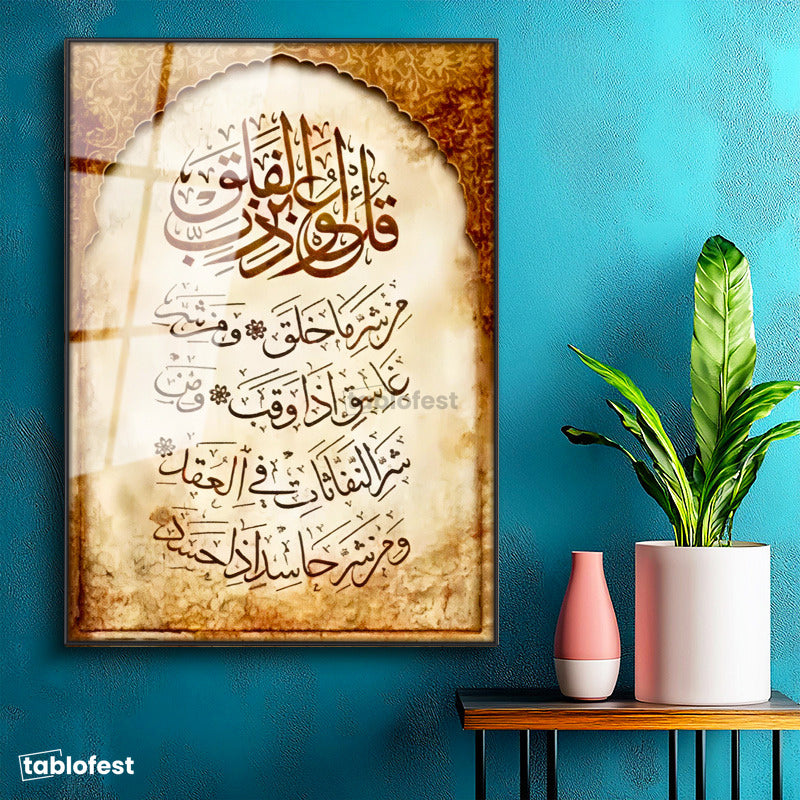 قُلْ أَعُوذُ بِرَبِّ الْفَلَقِ
مِن شَرِّ مَا خَلَقَ * وَمِن شَرِّ
غَاسِقٍ إِذَا وَقَبَ * وَمِن
شَرِّ النَّفَّاثَاتِ فِي الْعُقَدِ *
وَمِن شَرِّ حَاسِدٍ إِذَا حَسَدَ
tablofest
tablofest